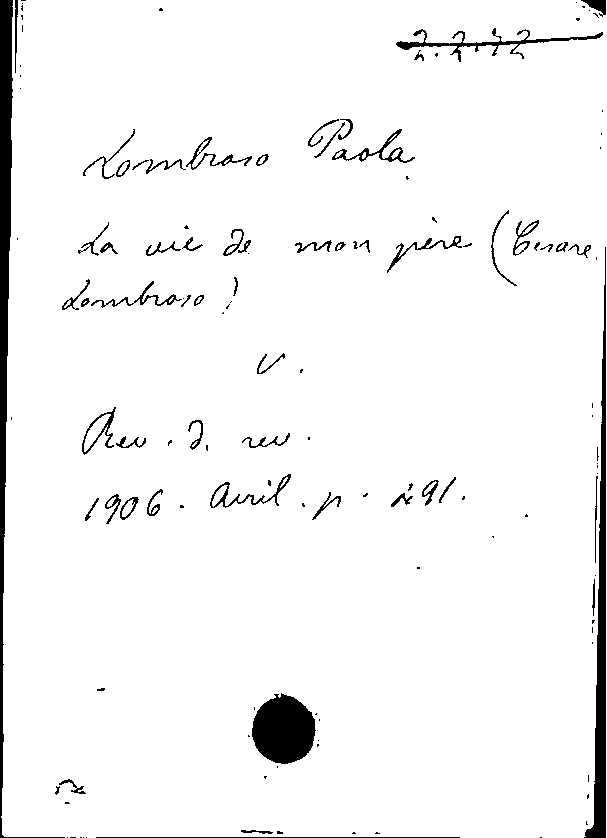 2.2.42
Lombroso Paola
La vie de mon père (Cesare
Lombroso)
v.
Rev. d. rev.
1906. Avril. p. 291.